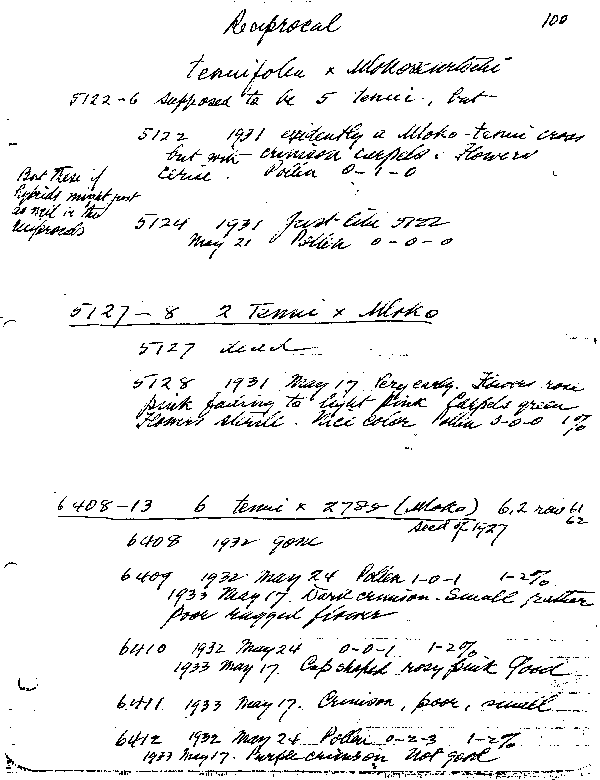 Reciprocal 100
tenuifolia x Mlokosewitschi
5122-6 supposed to be 5 tenui., but-
5122 1931 evidently a Mloko-tenui cross
but with crimson carpels. Flowers
cerise. Pollen 0-1-0
But these if
hybrids might just
as well be the
reciprocals
5124 1931 Just like 5122
May 21 Pollen 0-0-0
5127-8 2 Tenui x Mloko
5127 dead
5128 1931 May 17 Very early. Flowers rose
pink fading to light pink Carpels green
Flowers sterile. Nice color Pollen 0-0 1%
6408-13 6 tenui x 2788 (Mloko) 6,2 row 61
62
Seed of 1927
6408 1932 gone
6409 1932 May 24 Pollen 1-0-1 1-2%
1933 May 17. Dark crimson. Small rather
poor ragged flower
6410 1932 May 24 0-0-1 1-2%
1933 May 17. Cup shaped rosy pink Good
6411 1933 May 17. Crimson, poor, small
6412 1932 May 24 Pollen 0-2-3 1-2%
1933 May 17. Purple crimson Not good